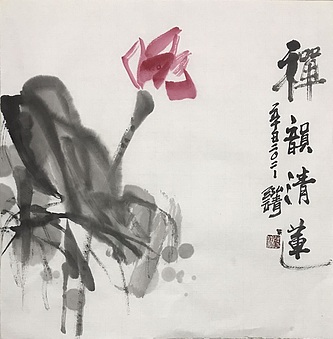 禪韻清蓮
辛丑二〇二一